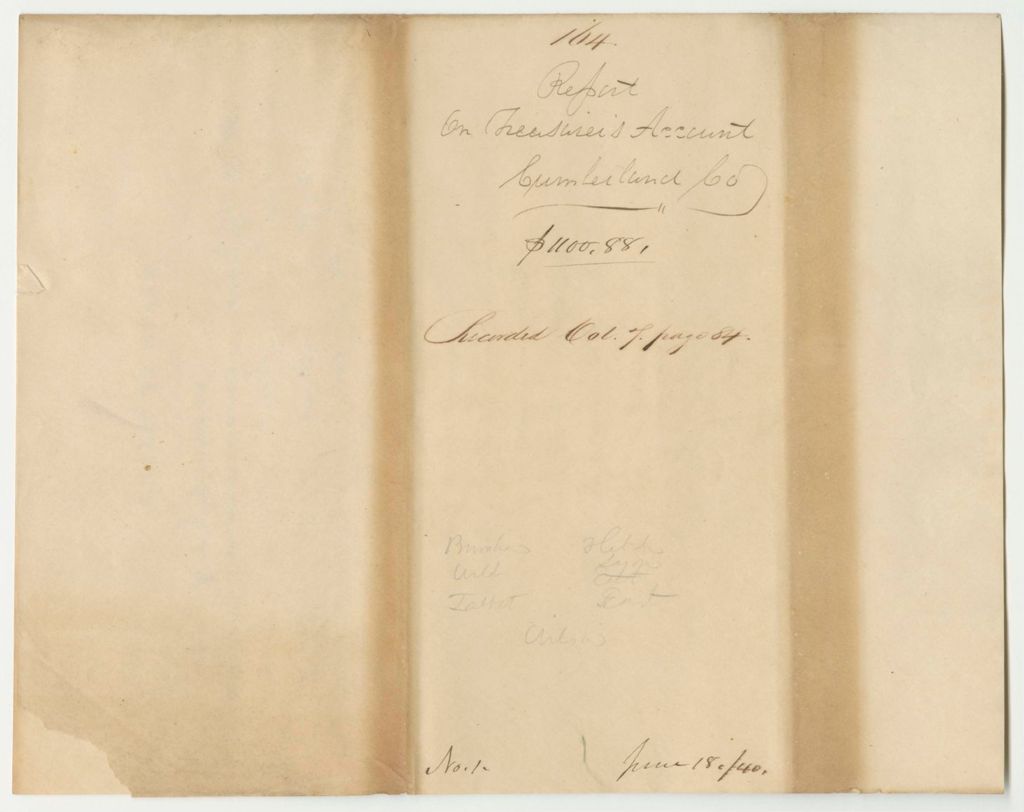 164.
Report
On Treasurer's Account
Cumberland Co
$1100.88.
Recorded Vol. 7. page 84.
Wild
Talbot
No. 1.
June 18./40.